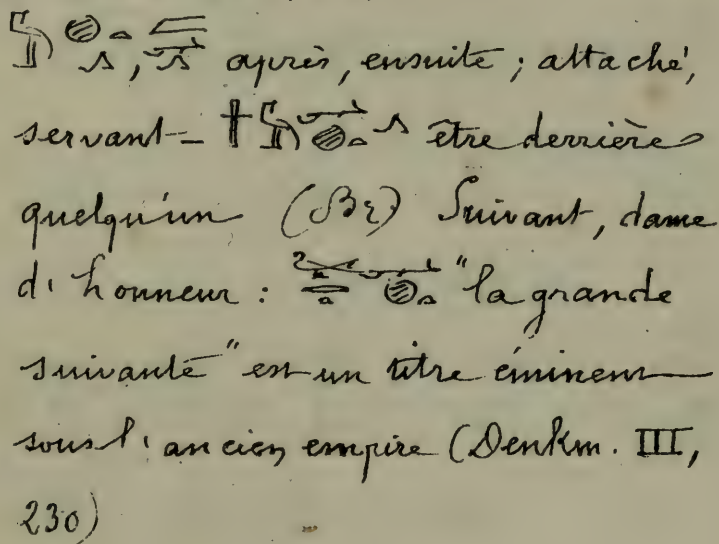 , après, ensuite ; attaché,
servant — être derrière
quelqu'un (Br) Suivant, dame
d'honneur : "la grande
suivante" est un titre éminent
sous l'ancien empire (Denkm. III,
230)